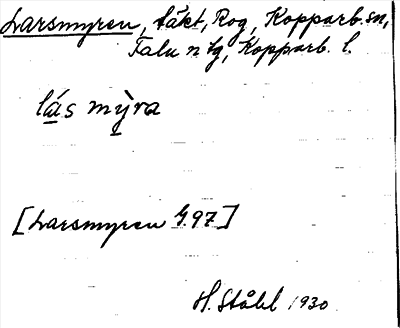 Larsmyren, täkt, Rog, Kopparb. sn,
Falu n tg, Kopparb. l.
lás mỳra
[Larsmyren G. 97]
H. Ståhl 1930